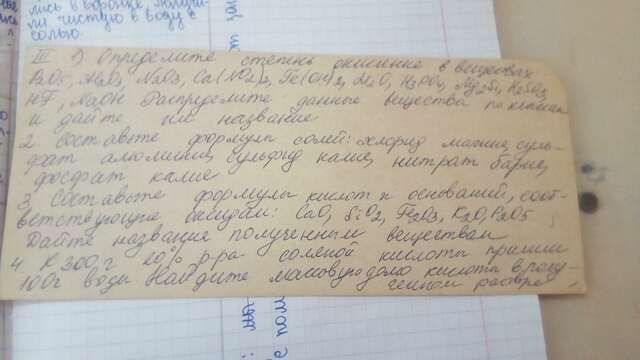 лись в воронке, получи-
ли чистую в воду с
солью.
III 1) Определите степень окисление в веществах:
P2O5, Al2O3, N2O3, Ca(NO2)2, Fe(OH)2, H2O, H3PO4, Mg2Si, K2SO3
HF, NaOH Распределите данные вещества по классам
и дайте им название
2. Составьте формулы солей: хлорид магния, суль-
фат алюминия, сульфид калие, нитрат бария,
фосфат калие
3. Составьте формулы кислот и оснований, соот-
ветствующие оксидам: CaO, SiO2, Fe2O3, K2O, P2O5
Дайте названия полученным веществам
4. К 300 г 20% р-ра соляной кислоты прилили
100г воды Найдите массовую долю кислоты в полу-
ченном растворе